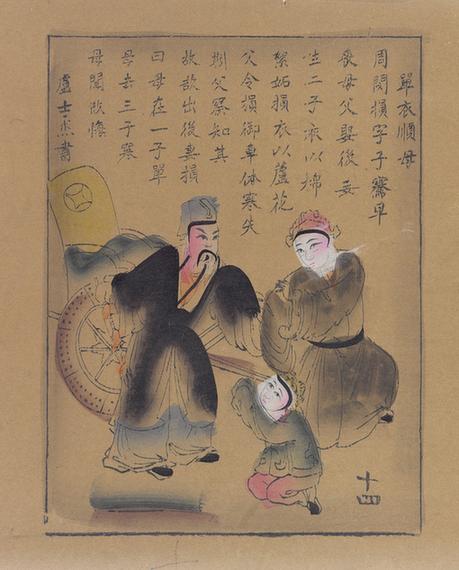 單衣順母
周閔損字子騫早
喪母父娶後妻
生二子衣以棉
絮妬損衣以蘆花
父令損御車体寒失
剕父察知其
故欲出後妻損
曰母在一子單
母去三子寒
母聞改悔
盧士杰書
十四